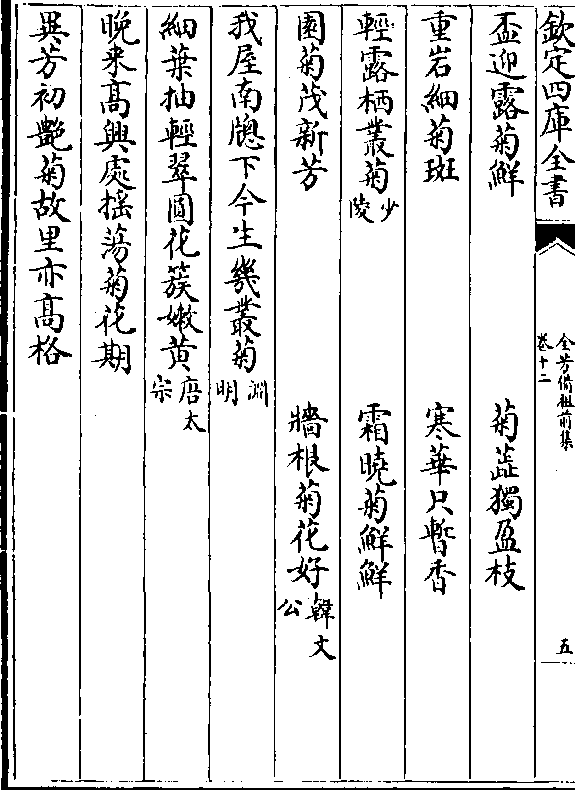 欽定四庫全書
全芳備祖前集
卷十二
五
盃迎露菊鮮　菊蘂獨盈枝
重岩細菊斑　寒華只暫香
輕露栖叢菊少陵　霜曉菊鮮鮮
園菊茂新芳　牆根菊花好韓文公
我屋南牕下今生幾叢菊淵明
細葉抽輕翠圓花簇嫩黄唐太宗
晚來髙興處揺蕩菊花期
異芳初艶菊故里亦髙格